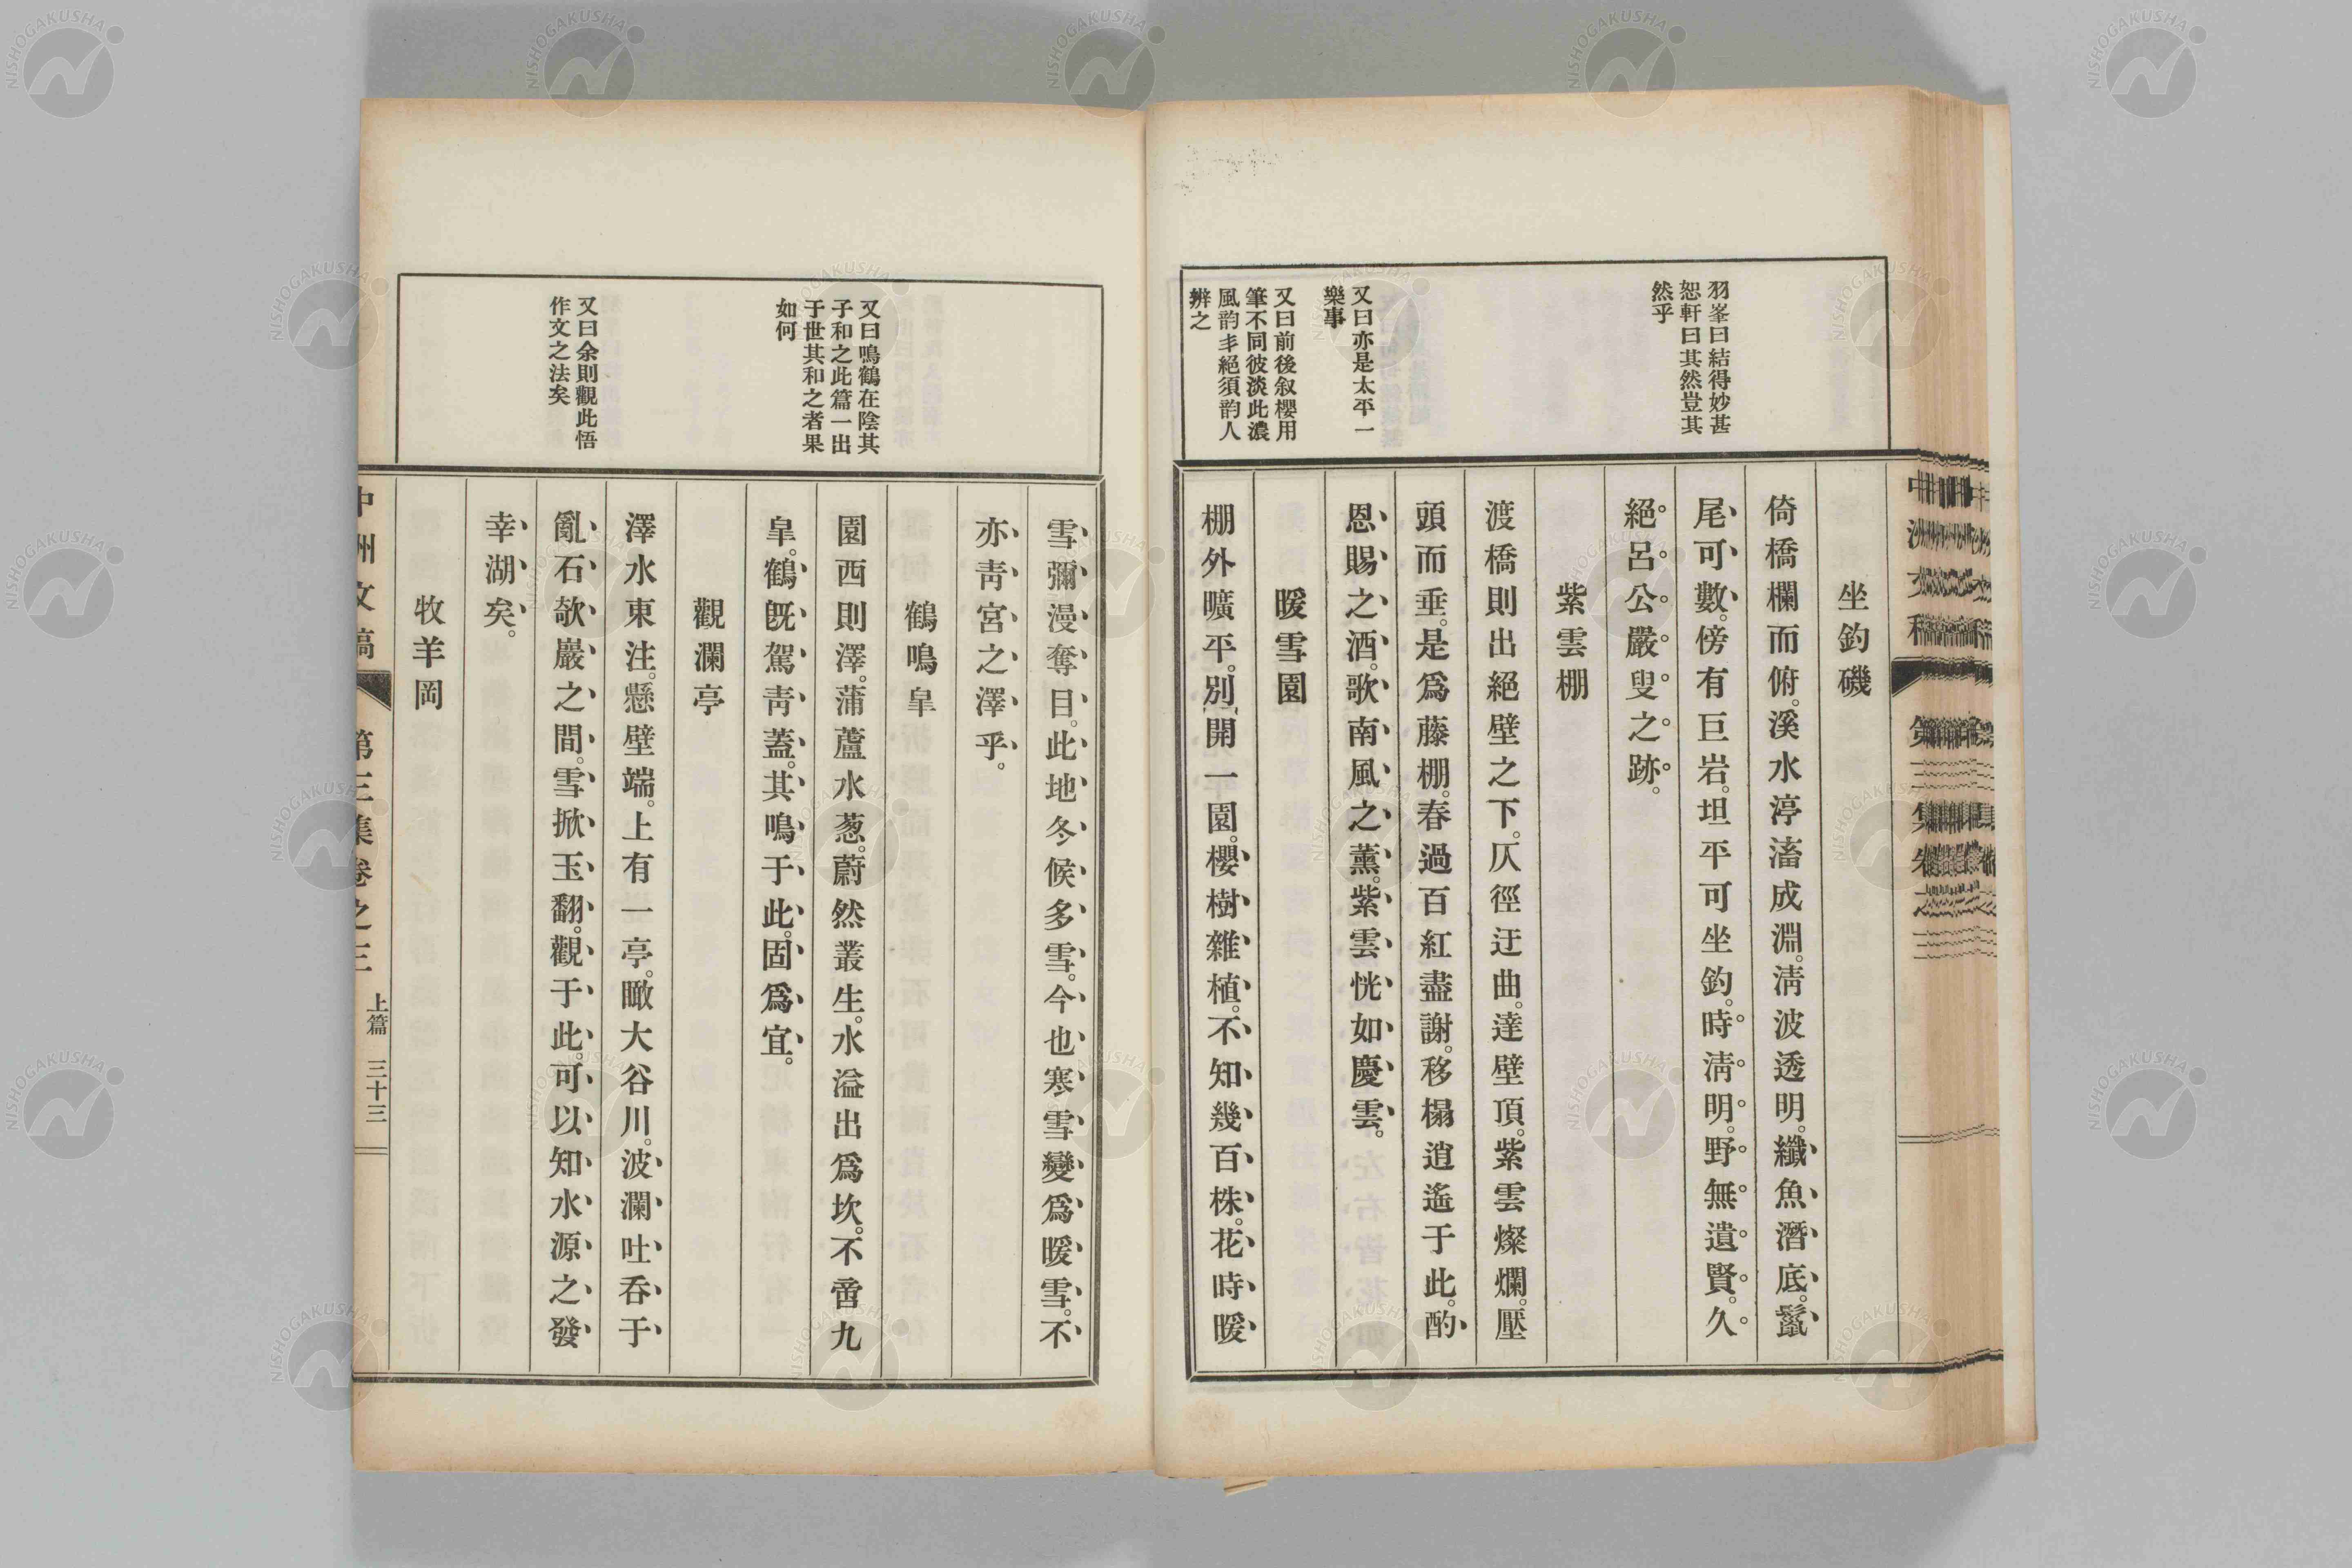 羽峯曰結得妙甚
恕軒曰其然豈其
然乎
又曰亦是太平一
樂事
又曰前後叙櫻用
筆不同彼淡此濃
風韵丰絕須韵人
辨之
坐釣磯
倚橋欄而俯。溪水渟滀成淵。淸波透明。纖魚潛底。鬣
尾可數。傍有巨岩。坦平可坐釣。時淸明。野無遺賢。久
絕呂公嚴叟之跡。
紫雲棚
渡橋則出絕壁之下。仄徑迂曲。達壁頂。紫雲燦爛。壓
頭而垂。是爲藤棚。春過百紅盡謝。移榻逍遙于此。酌
恩賜之酒。歌南風之薰。紫雲恍如慶雲。
暖雪園
棚外曠平。別開一園。櫻樹雜植。不知幾百株。花時暖
又曰鳴鶴在陰其
子和之此篇一出
于世其和之者果
如何
又曰余則觀此悟
作文之法矣
雪彌漫奪目。此地冬候多雪。今也寒雪變爲暖雪。不
亦靑宮之澤乎。
鶴鳴皐
園西則澤。蒲蘆水葱。蔚然叢生。水溢出爲坎。不啻九
皐。鶴旣駕靑蓋。其鳴于此。固爲宜。
觀瀾亭
澤水東注。懸壁端。上有一亭。瞰大谷川。波瀾吐呑于
亂石欹巖之間。雪掀玉翻。觀于此。可以知水源之發
幸湖矣。
牧羊岡
中洲文稿 第三集卷之三 上篇 三十三